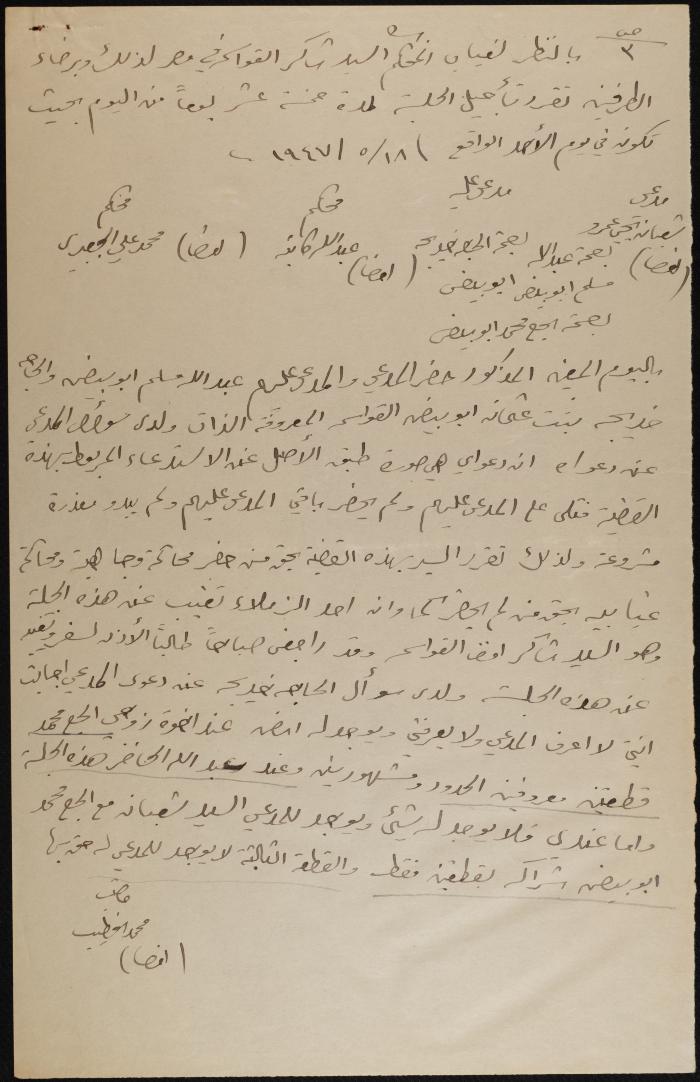 ص
٣
بالنظر لغياب المحكم السيد شاكر القواسمي في مصر لذلك وبرضاء
الطرفين تقرر تأجيل الجلسة لمدة خمسة عشر يوماً من اليوم بحيث
تكون في يوم الأحد الواقع ١٨/ ٥/ ١٩٤٧
مدعى مدعى عليه محكم محكم
شعبان يحيى عمرو بصمة عبدالله بصمة الحاجه خديجه عبدالله كاتبة محمد علي الجعبري
(امضا) مسلم ابو بيض ابو بيض (امضا) (امضا)
بصمة الحج محمد ابو بيض
باليوم المعين المذكور حضر المدعي والمدعى عليهم عبدالله مسلم ابو بيض والحاجه
خديجه بنت عثمان ابو بيض القواسمه المعروفة الذات ولدى سؤال المدعي
عن دعواه ان دعواي هي صورة طبق الأصل عن الاستدعاء المربوط بهذه
القضية فتلى على المدعى عليهم ولم يحضر باقي المدعى عليهم ولم يبدو معذرة
مشروعة ولذلك تقرر السير بهذه القضية بحق من حضر محاكمة وجاهية ومحاكمة
غيابيه بحق من لم يحضر كما وان احد الزملاء تغيب عن هذه الجلسة
وهو السيد شاكر القواسمه وقد راجعني صباحاً طالباً الأذن لسفره وتغيبه
عن هذه الجلسة ولدى سؤال الحاجه خديجه عن دعوى المدعي اجابت
انني لا اعرف المدعي ولا يعرفني ويوجد له ارض عند اخوة زوجي الحج محمد
قطعتين معروفين الحدود ومشهورين وعند عبدالله الحاضر هذه الجلسة
واما عندي فلا يوجد له شيئ ويوجد للمدعي السيد شعبان مع الحج محمد
ابو بيض شراكه بقطعتين فقط والقطعة الثالثة لا يوجد للمدعي له حق بها
محمد الخطيب
(امضا)